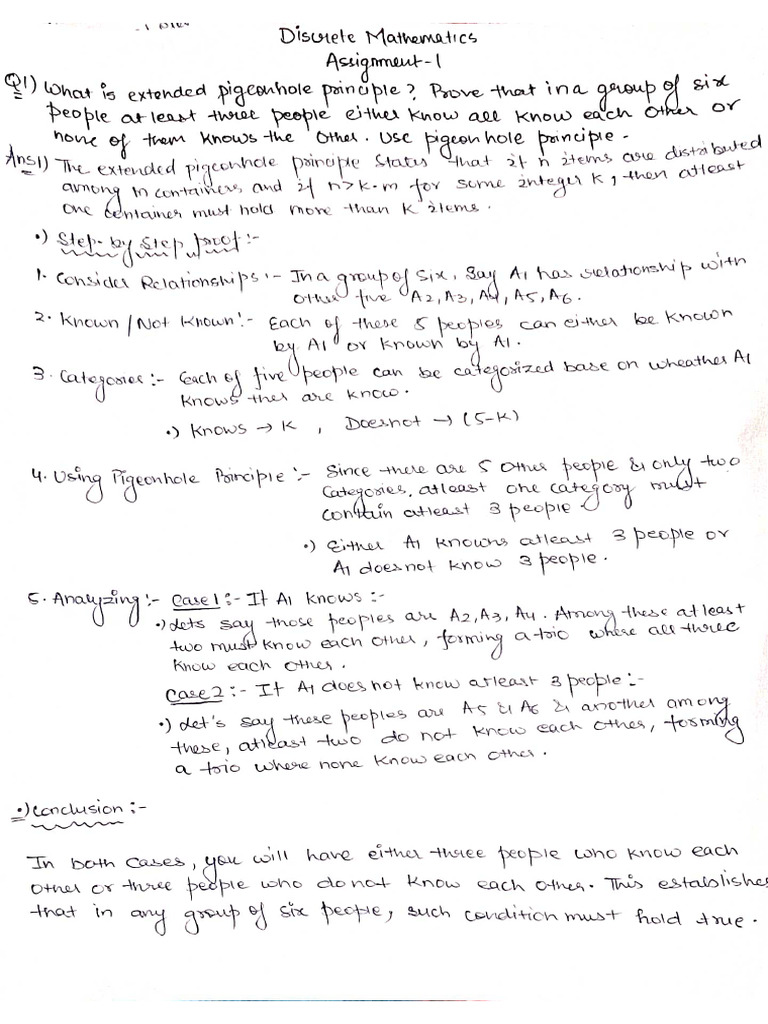 Discrete Mathematics
Assignment-1
Q1) What is extended pigeonhole principle? Prove that in a group of six
people at least three people either know all know each other or
none of them knows the other. Use pigeonhole principle.
Ans1) The extended pigeonhole principle states that if n items are distributed
among m containers, and if n>k.m for some integer k, then atleast
one container must hold more than k items.
•) Step-by Step proof:-
1. Consider Relationships:- In a group of six, Say A1 has relationship with
other five A2, A3, A4, A5, A6.
2. Known/Not Known:- Each of these 5 peoples can either be known
by A1 or known by A1.
3. Categories:- Each of five people can be categorized base on wheather A1
knows ther are know.
•) Knows → K , Doesnot → (5-K)
4. Using Pigeonhole Principle:- Since there are 5 other people & only two
categories, atleast one category must
contain atleast 3 people.
•) Either A1 knowns atleast 3 people or
A1 does not know 3 people.
5. Analyzing:- Case1:- If A1 knows:-
•) Lets say those peoples are A2, A3, A4. Among these at least
two must know each other, forming a trio where all three
know each other.
Case2:- If A1 does not know atleast 3 people:-
•) Let's say these peoples are A5 & A6 & another among
these, atleast two do not know each other, forming
a trio where none know each other.
•) Conclusion:-
In both cases, you will have either three people who know each
other or three people who do not know each other. This establishes
that in any group of six people, such condition must hold true.